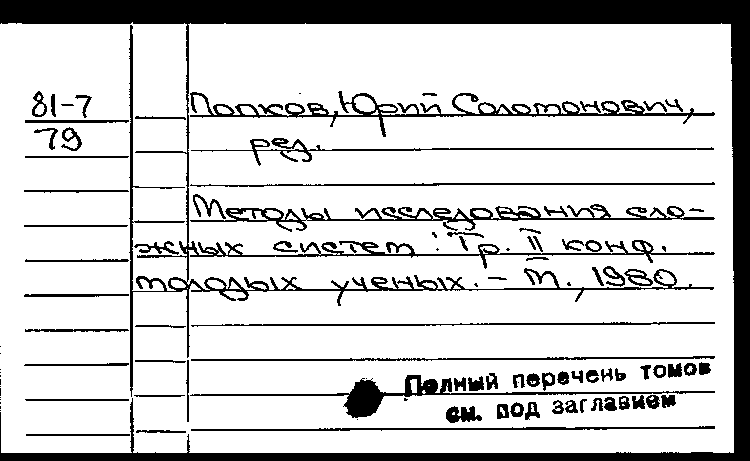 81-7
79
Попков, Юрий Соломонович,
ред.
Методы исследования сло-
жных систем : Тр. II конф.
молодых ученых. - М., 1980.
Полный перечень томов
см. под заглавием